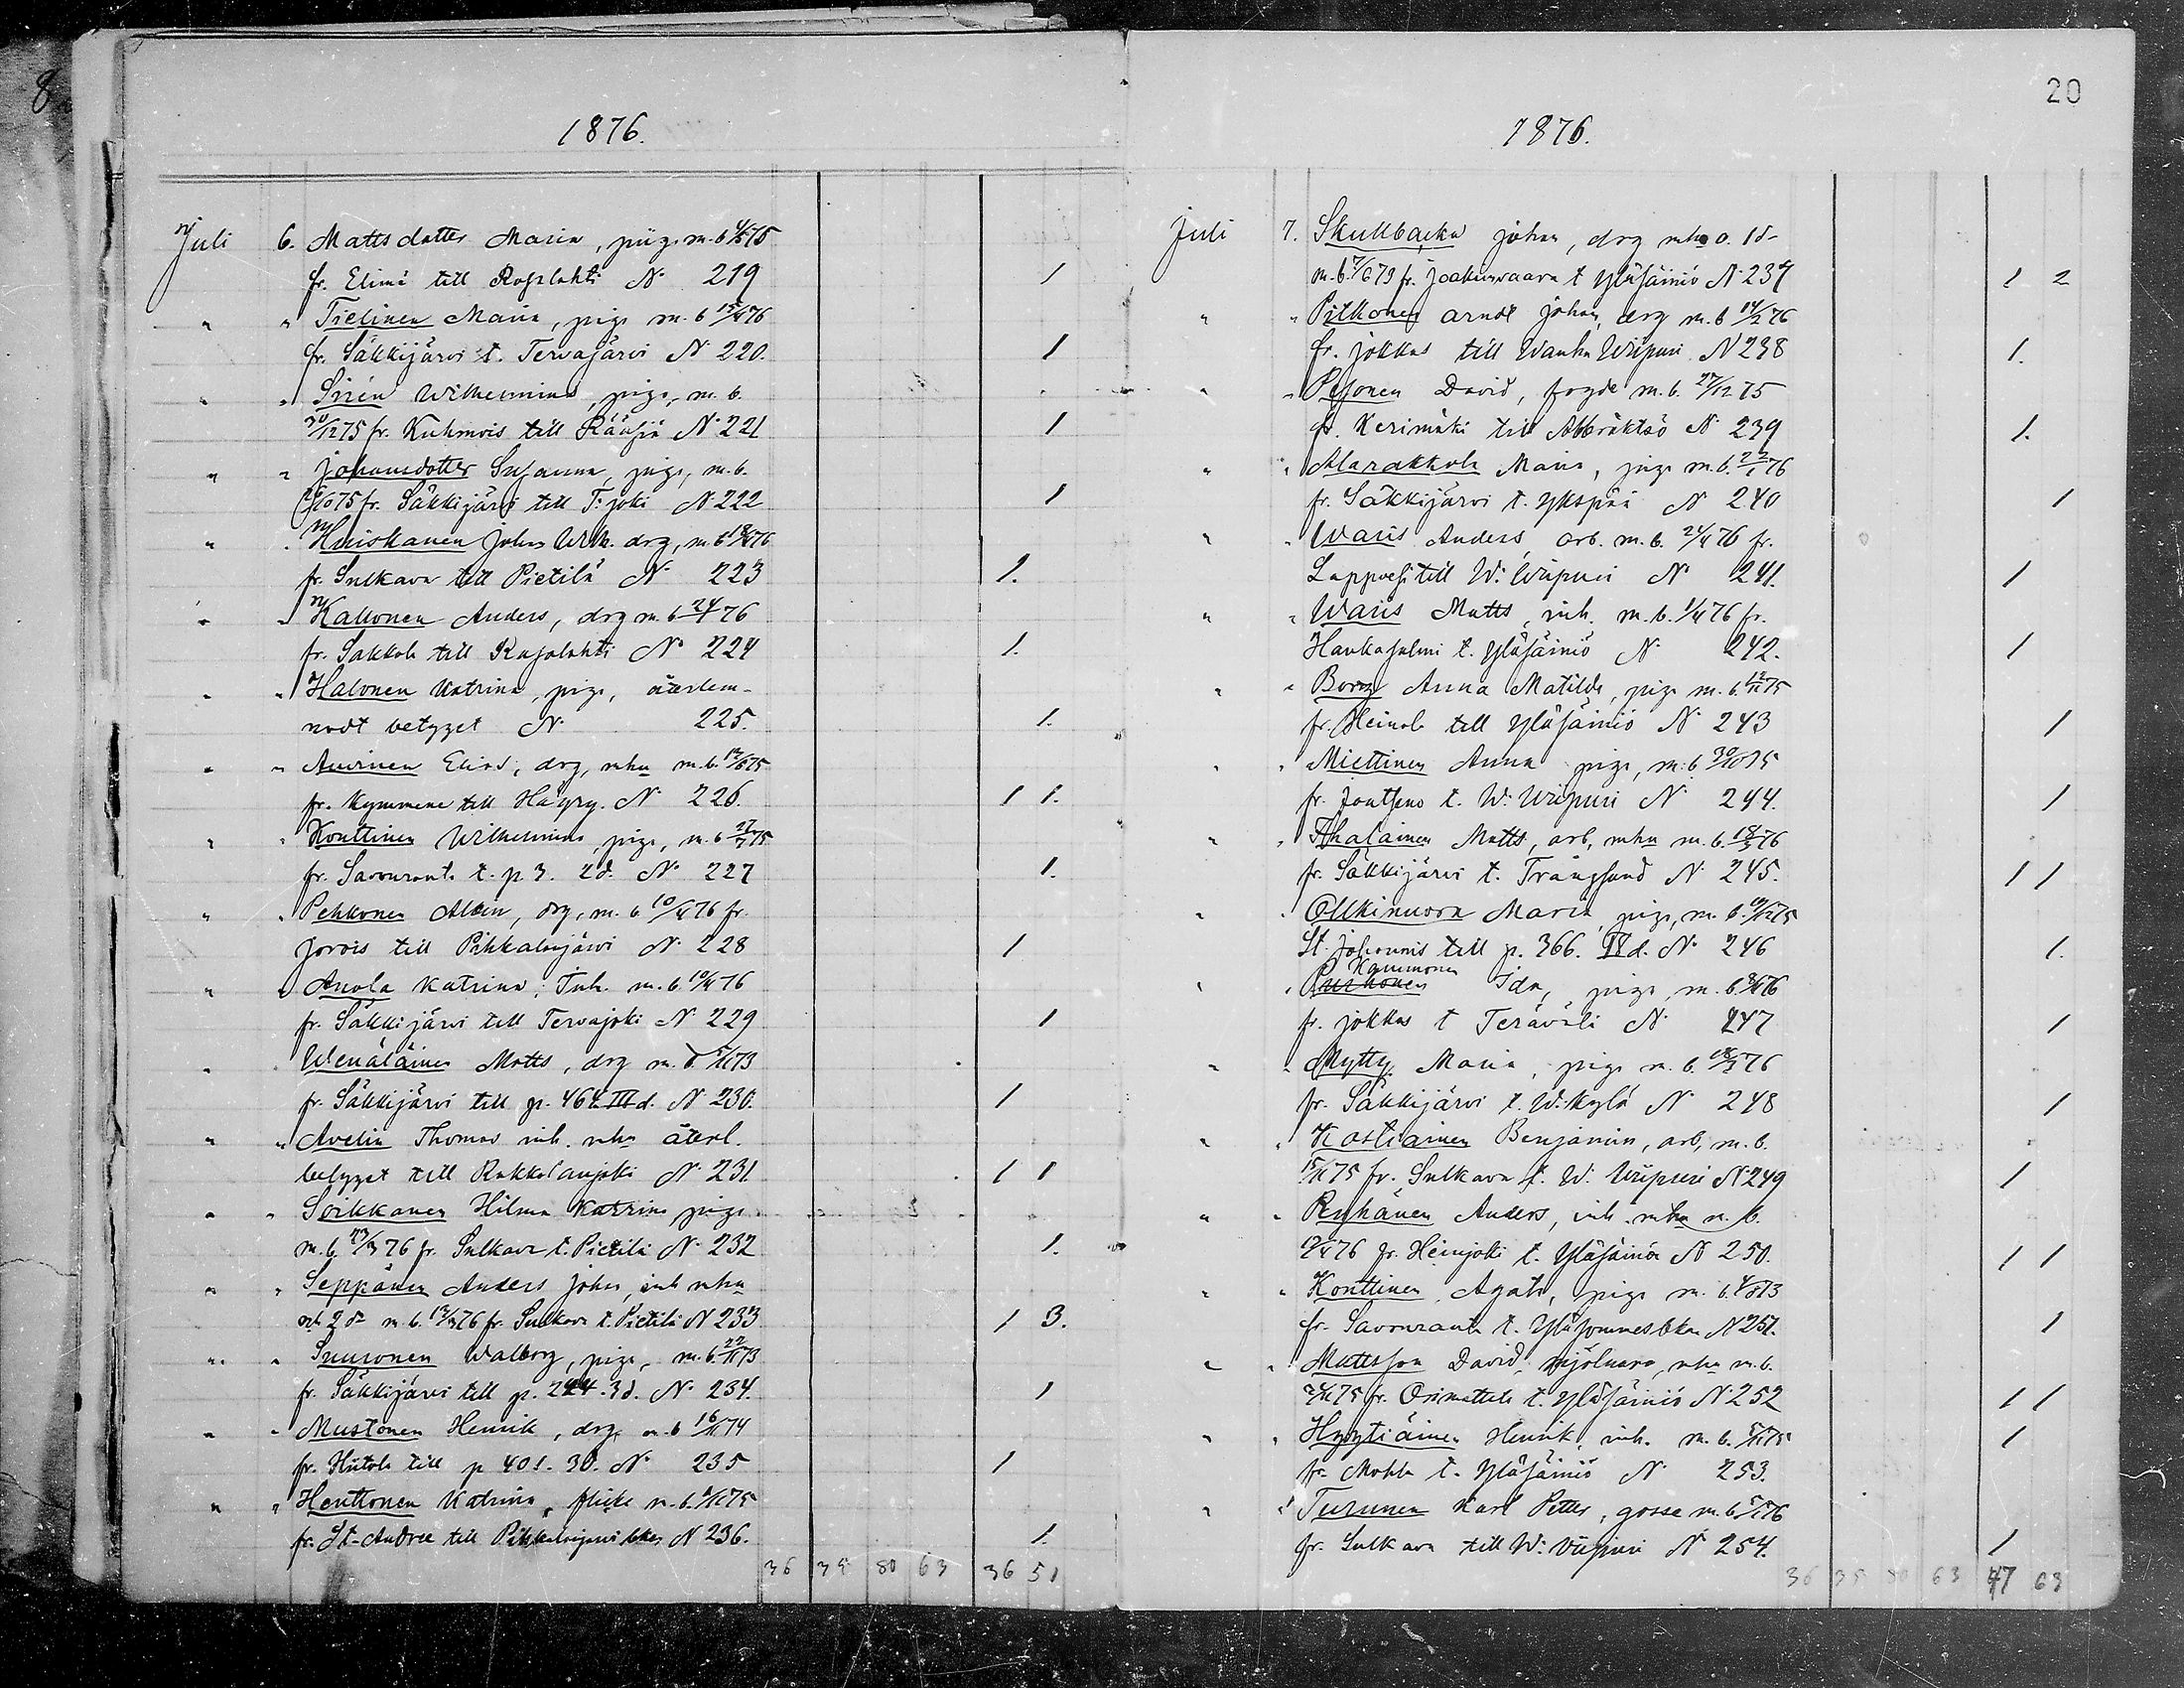 8
1876.
Juli 6. Mattsdotter Maria, piga m.b 4/5 75
fr. Elimä till Rapslahti N. 219 1
" " Tielinen Maria, piga m. b 15/4 76
fr. Säkkijärvi t. Tervajärvi N. 220. 1
" " Sirén Wilhelmina, piga, m. b.
30/12 75 fr. Kuhmois till N. 221 1
" " Johansdotter Susanna, piga, m. b.
/10 75 fr. Säkkijärvi till T:joki N. 222 1
" " Huiskanen Johan Wilh. drg, m. b 18/4 76
fr. Sulkava till Pietilä N. 223 1.
" " Kallonen Anders, drg m. b 24/4 76
fr. Sakkola till Rapalahti No 224 1.
" " Halonen Katrina, piga, återlem-
nadt betyget N. 225. 1.
" " Auvinen Elias, drg, mhu m. b. 12/6 75
fr. Kymmene till Häyry. N. 226. 1 1.
" " Konttinen Wilhelmina, piga, m. b 27/7 75
fr. Savonranta t. p. 3. 2d. N. 227 1.
" " Pehkonen Albin, drg, m. b 10/4 76 fr.
Jorois till Pihkalanjärvi N. 228 1
" " Anola Katrina, Inh. m. b. 10/4 76
fr. Säkkijärvi till Tervajoki N. 229 1
" " Wenäläinen Matts, drg m. b. /11 73
fr. Säkkijärvi till p. 464 III d. N. 230. 1
" " Avelin Thomas inh. mhu återl.
betyget till Rakkolanjoki N. 231 1 1
" " Soikkanen Hilma Katrina piga
m. b. 23/3 76 fr. Sulkava t. Pietilä N. 232 1.
" " Seppänen Anders Johan, inh mhu
och 2 dr m. b. 13/3 76 fr. Sulkava t. Pietilä N 233 1 3.
" " Suuronen Walborg, piga, m. b. 22/11 73
fr. Säkkijärvi till p. 244. 3d. N. 234. 1
" " Mustonen Henrik, drg, m. b 16/11 74
fr. Hiitola till p 401. 3d. N. 235 1
" " Henttonen Katrina, flicka m. b. 1/11 75
fr. St. Andree till Pihkalanjärvi N 236. 1.
36 35 80 63 36 51
20
1876.
Juli 7. Skullbacka Johan, drg mhu o. 1 d-
m. b. 7/6 73 fr. Joakimvaara t Yläsäiniö N. 237 1 2
" " Pitkonen Johan, drg m. b 14/2 76
fr. Jokkas till Wanha Wiipuri N 238 1.
" " Pesonen David, fogde m. b. 27/12 75
fr. Kerimäki till N. 239 1.
" " Alarakkola Maria, piga m. b. 22/1 76
fr. Säkkijärvi t. Ykspää N 240 1
" " Waris Anders, arb. m. b. 24/4 76 fr.
Lappvesi till W. Wiipuri N 241. 1
" " Waris Matts, inh. m. b. 1/4 76 fr.
Hankasalmi t. Yläsäiniö N. 242. 1
" " Borg Anna Matilda, piga m. b. 12/11 75
fr. Heinola till Yläsäiniö N. 243 1
" " Miettinen Anna piga, m. b. 30/10 75
fr. Joutseno t. W. Wiipuri N. 244. 1
" " Ihalainen Matts, arb, mhu m. b. 18/3 76
fr. Säkkijärvi t. Trångsund N. 245. 1 1
" " Ollkinuora Maria, piga, m. b. 19/12 75
St. Johannis till p. 366. II d. No 246 1.
Kammonen
" " Ida, piga, m. b. 8/4 76
fr. Jokkas t Terävälä N. 247 1
" " Mytty Maria, piga m. b. 18/3 76
fr. Säkkijärvi t. W:kylä N. 248 1
" " Kostiainen Benjamin, arb, m. b.
15/11 75 fr. Sulkava t. W. Wiipuri N 249 1
" " Pyyhänen Anders, inh. mhu m. b.
19/4 76 fr. Heinjoki t. Yläsäiniö N 250. 1 1
" " Konttinen Agata, piga m. b. 4/8 73
fr. Savonranta t. N 251. 1
" " Mattsson David, mjölnare, mhu m. b.
24/11 75 fr. Orimattila t. Yläsäiniö N. 252 1 1
" " Hyytiäinen Henrik, inh. m. b. 5/11 75 1
fr. Mohla t. Yläsäiniö N. 253.
" " Turunen Karl Petter, gosse m. b 5/5 76
fr. Sulkava till W. Viipuri N 254. 1
36 35 80 63 47 63